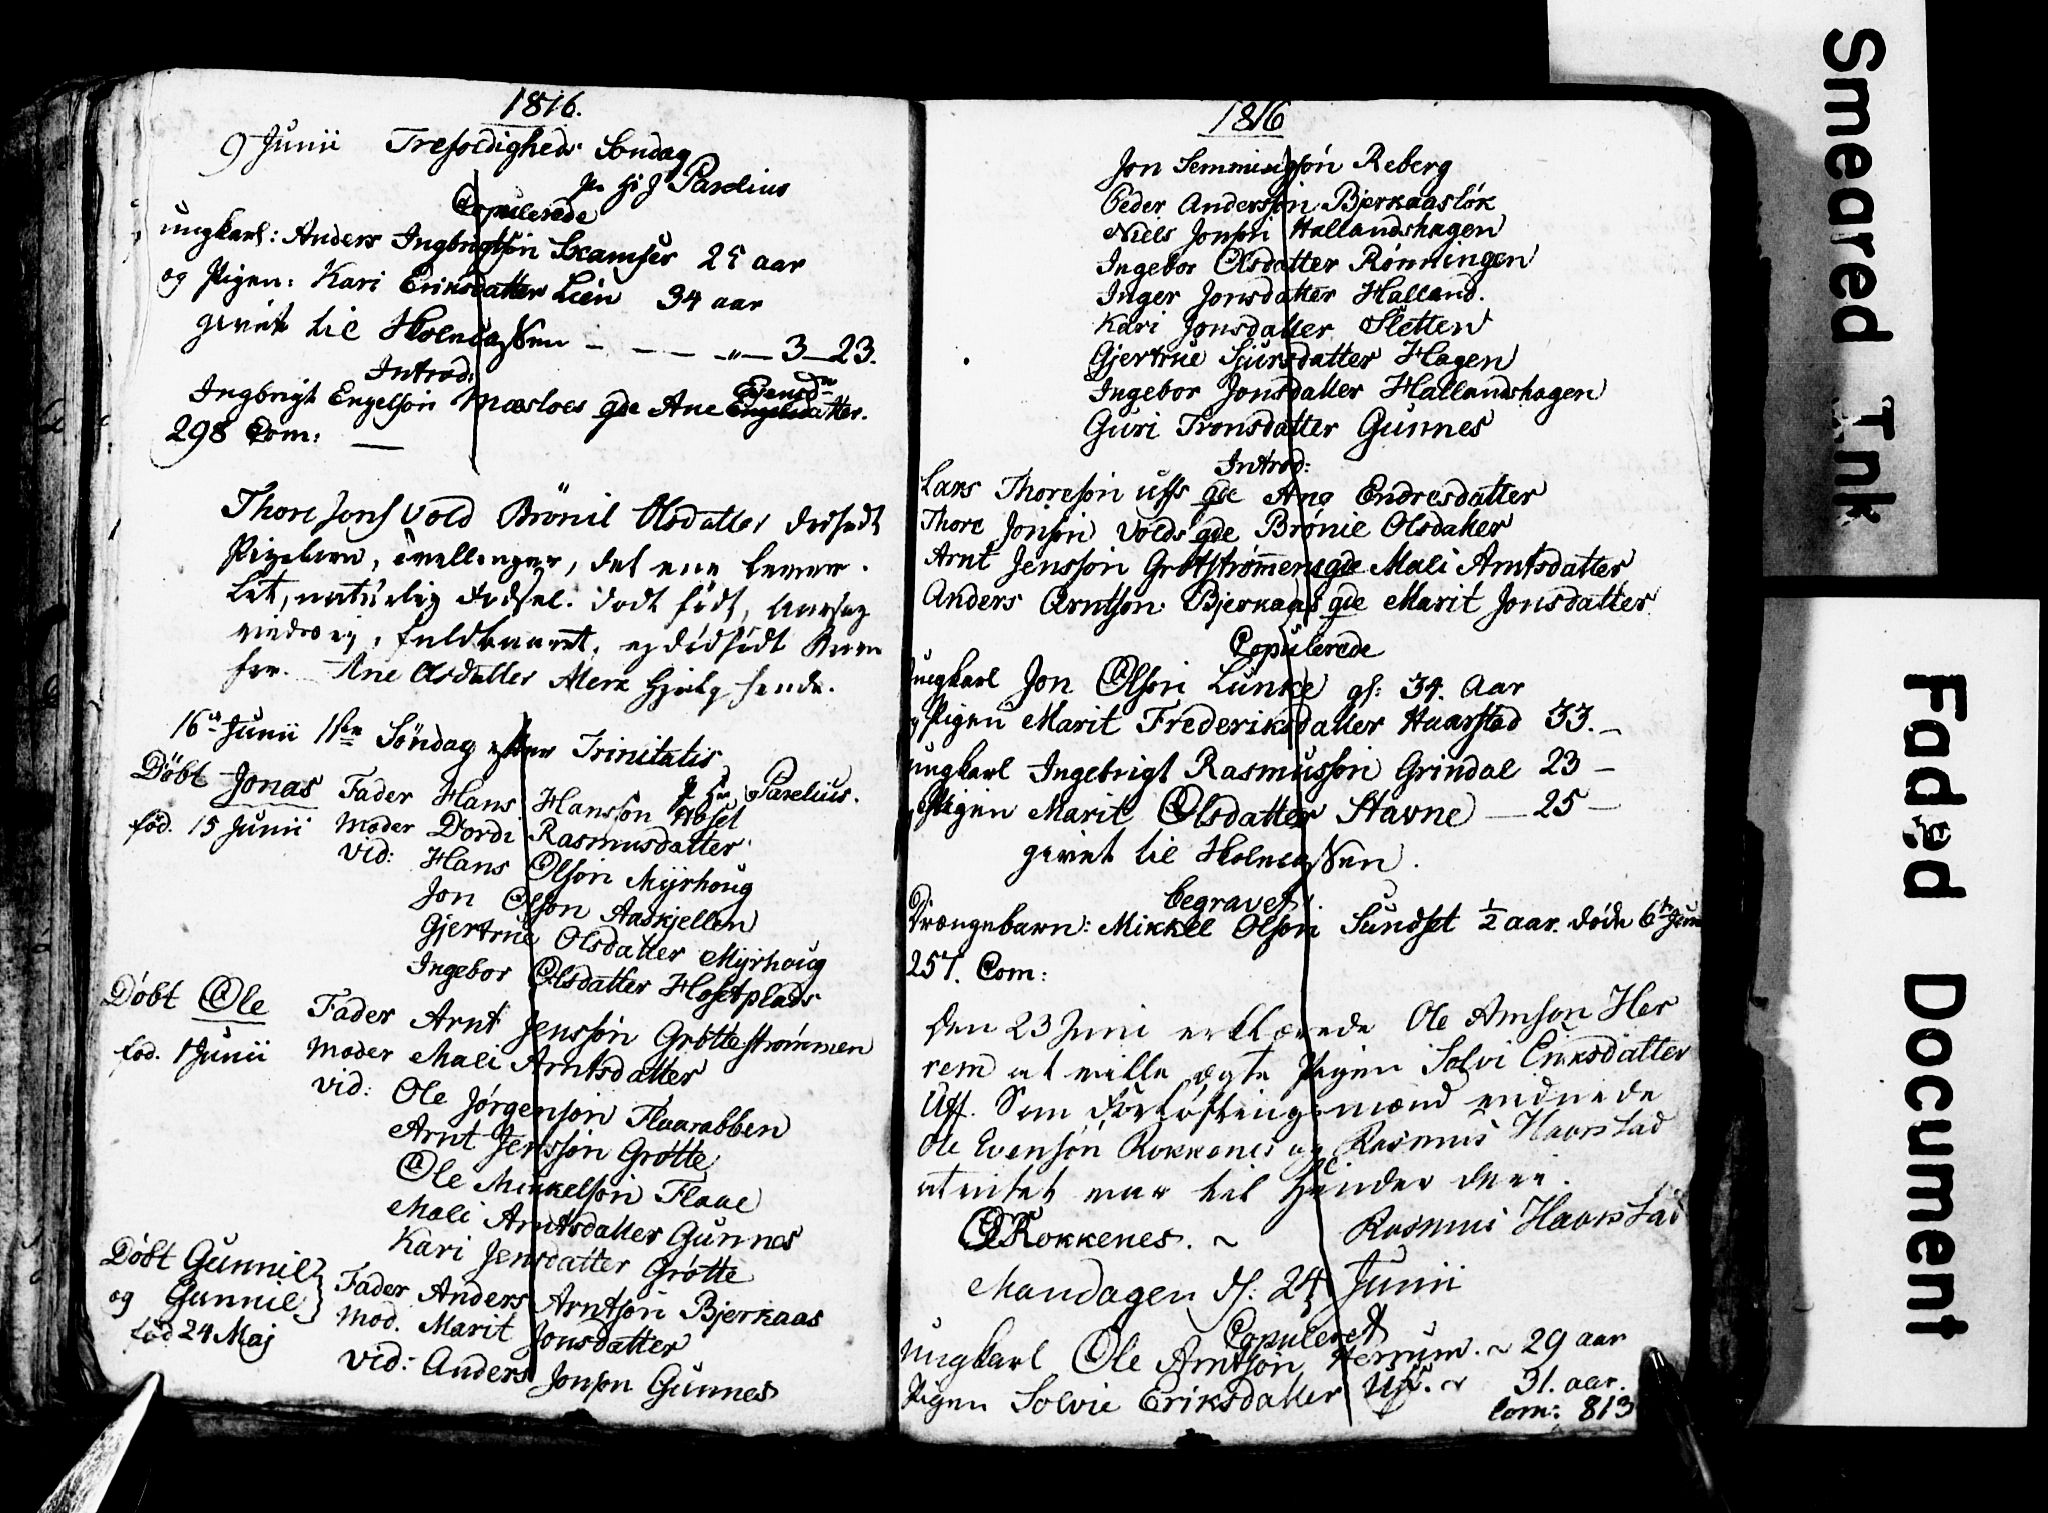 1816.
9 Junii Trefoldigheds Søndag
pr Hr J Parelius
Copulerede
ungkarl: Anders Ingbrigtsøn Skamfer 25 aar
og Pigen: Kari Eriksdatter Lien 34 aar
givet til Skolecassen - - - „ - 3 - 23.
Introd:
Ingbrigt Engelsøn Mæsloes gde Ane Engelsdatter.
298 Com:
Thore Jons Vold Brönil Olsdatter dødfødt
Pigebarn, tvillinger, det ene levende
Let, naturlig Fødsel. dødt født, Aarsag
vides ej, fuldbaaret, ej dødfødt Barn
før. Ane Olsdatter Mere hjalp hende.
16de Junii 1ste Söndag efter Trinitatis
P. Hr. Parelius.
Döbt Jonas Fader Hans Hanssøn Hoset
fød. 15 Junii Moder Dordi Rasmusdatter
vid: Hans Olsøn Myrhoug
Jon Olsøn Aaskjellen
Gjertrue Olsdatter Myrhoug
Ingebor Olsdatter Hosetplads
Döbt Ole Fader Arnt Jenssøn Grøttestrømmen
fød. 1 Junii Moder Mali Arntsdatter
vid: Ole Jørgensøn Flaarabben
Arnt Jenssøn Grøtte
Ole Mikkelsøn Flaae
Mali Arntsdatter Gunnes
Kari Jensdatter Grøtte
Döbt Gunnil
og Gunnil Fader Anders Arntsøn Bjerkaas
fød 24 Maj Mod. Marit Jonsdatter
vid: Anders Jonsøn Gunnes
1816
Jon Semmingsøn Reberg
Peder Anderssøn Bjerkaasløk
Niels Jonsøn Hallandshagen
Ingebor Olsdatter Rønningen
Inger Jonsdatter Halland.
Kari Jonsdatter Sletten
Gjertrue Sjursdatter Hagen
Ingebor Jonsdatter Hallandshagen
Guri Tronsdatter Gunnes
Introd:
Lars Thoresøn Uffs gde Ane Endresdatter
Thore Jonsøn Volds gde Brønil Olsdatter
Arnt Jenssøn Grøtstrømmens gde Mali Arntsdatter
Anders Arntsøn Bjerkaas gde Marit Jonsdatter
Copulerede
ungkarl Jon Olsøn Lunke gl: 34. Aar
Pigen Marit Frederiksdatter Haarstad 33. -
ungkarl Ingebrigt Rasmussøn Grindal 23 -
Pigen Marit Olsdatter Stavne - 25 -
givet til Skolecassen.
begravet.
Drængebarn: Mikkel Olsøn Sundset ½ aar. døde 6te Juni
257. Com:
Den 23 Juni erklærede Ole Arnson Her
rem at ville ægte Pigen Solvi Eriksdatter
Uff. Som Forløftningsmænd vidnede
Ole Evensøn Rokkenes og Rasmus Haarstad
at intet var til Hinder deri.
OES Rokkenes. ~ Rasmus Haarstad
Mandagen d: 24 Junii
Copuleret
ungkarl Ole Arntsøn Herrum. ~ 29 aar
Pigen Solvie Eriksdatter Uff. ~ 31. aar.
Com: 813
Smeared Ink
Faded Document